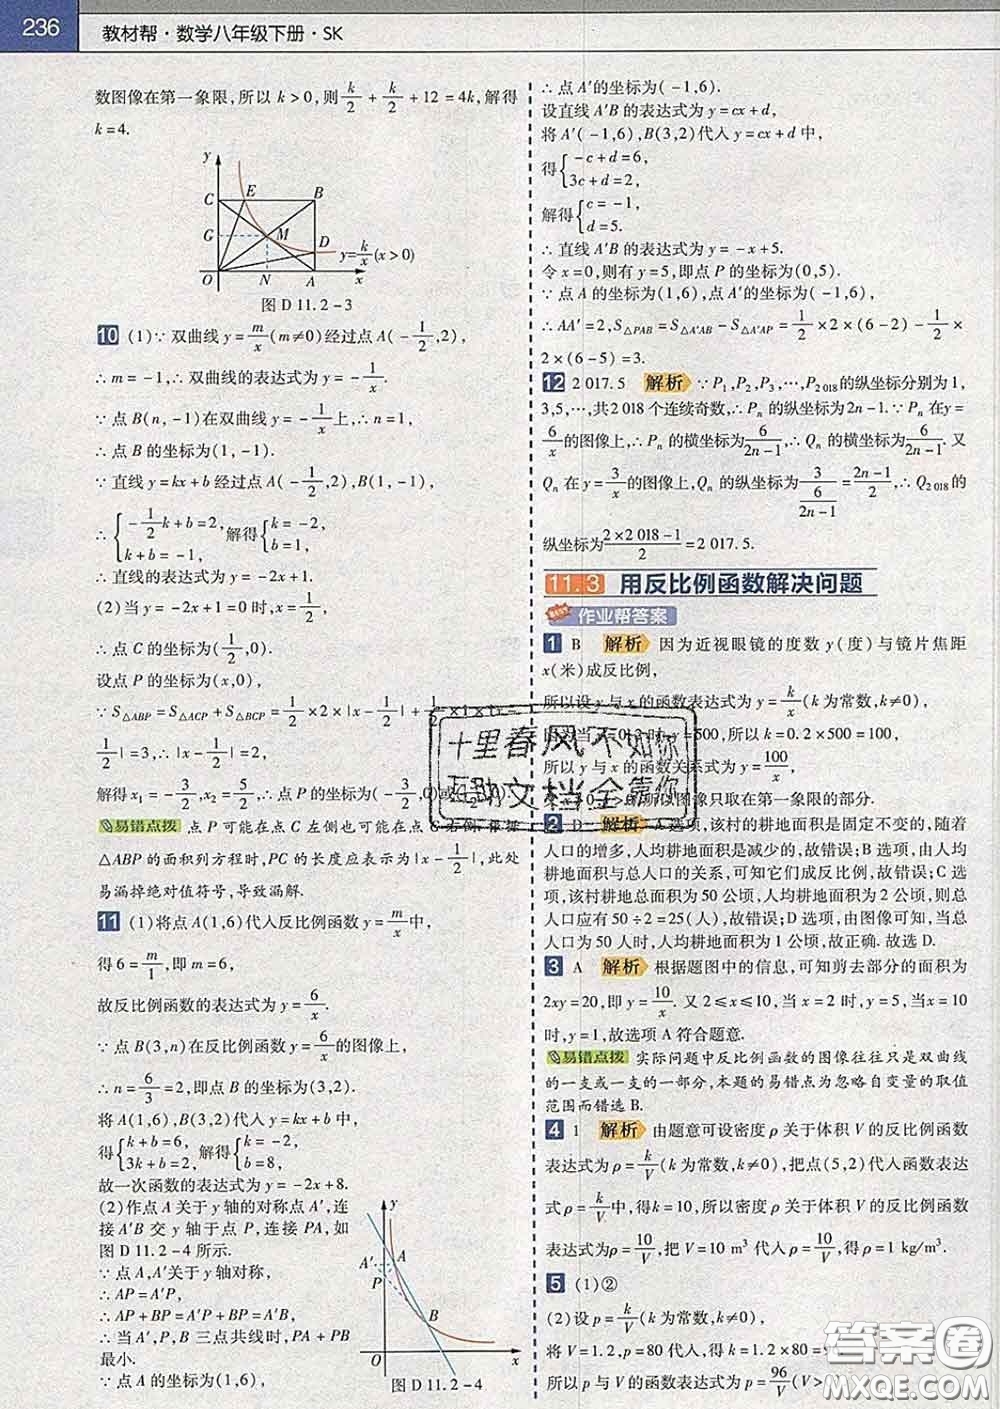 236
教材帮·数学八年级下册·SK
数图像在第一象限,所以 k>0,则 k/2 + k/2 + 12 = 4k,解得
k=4.
y
C E B
G M
D
y=k/x (x>0)
O N A x
图 D 11.2-3
10 (1)∵双曲线 y=m/x (m≠0)经过点 A(-1/2,2),
∴m=-1,∴双曲线的表达式为 y=-1/x.
∵点 B(n,-1)在双曲线 y=-1/x上,∴n=1,
∴点 B 的坐标为(1,-1).
∵直线 y=kx+b 经过点 A(-1/2,2),B(1,-1),
∴{-1/2 k+b=2, k+b=-1, 解得{k=-2, b=1,
∴直线的表达式为 y=-2x+1.
(2)当 y=-2x+1=0 时,x=1/2,
∴点 C 的坐标为(1/2,0).
设点 P 的坐标为(x,0),
∵S△ABP=S△ACP+S△BCP=1/2×2×|x-1/2|+1/2×1×|x-
1/2|=3,∴|x-1/2|=2,
解得 x1=-3/2,x2=5/2,∴点 P 的坐标为(-3/2,0)或(5/2,0).
易错点拨 点 P 可能在点 C 左侧也可能在点 C 右侧,根据
△ABP 的面积列方程时,PC 的长度应表示为|x-1/2|,此处
易漏掉绝对值符号,导致漏解.
11 (1)将点 A(1,6)代入反比例函数 y=m/x中,
得 6=m/1,即 m=6,
故反比例函数的表达式为 y=6/x.
∵点 B(3,n)在反比例函数 y=6/x的图像上,
∴n=6/3=2,即点 B 的坐标为(3,2).
将 A(1,6),B(3,2)代入 y=kx+b 中,
得{k+b=6, 3k+b=2, 解得{k=-2, b=8,
故一次函数的表达式为 y=-2x+8.
(2)作点 A 关于 y 轴的对称点 A′,连
接 A′B 交 y 轴于点 P,连接 PA,如
图 D 11.2-4 所示.
∵点 A,A′关于 y 轴对称,
∴AP=A′P,
∴AP+BP=A′P+BP=A′B,
∴当 A′,P,B 三点共线时,PA+PB
最小.
∵点 A 的坐标为(1,6),
y
A′ A
P
B
O x
图 D 11.2-4
∴点 A′的坐标为(-1,6).
设直线 A′B 的表达式为 y=cx+d,
将 A′(-1,6),B(3,2)代入 y=cx+d 中,
得{-c+d=6, 3c+d=2,
解得{c=-1, d=5.
∴直线 A′B 的表达式为 y=-x+5.
令 x=0,则有 y=5,即点 P 的坐标为(0,5).
∵点 A 的坐标为(1,6),点 A′的坐标为(-1,6),
∴AA′=2,S△PAB=S△A′AB-S△A′AP=1/2×2×(6-2)-1/2×
2×(6-5)=3.
12 2 017.5 解析 ∵P1,P2,P3,…,P2 018的纵坐标分别为 1,
3,5,…,共 2 018 个连续奇数,∴Pn 的纵坐标为 2n-1.∵Pn 在 y=
6/x的图像上,∴Pn 的横坐标为6/(2n-1),∴Qn 的横坐标为6/(2n-1). 又
Qn 在 y=3/x的图像上,∴Qn 的纵坐标为3/(6/(2n-1))=(2n-1)/2,∴Q2 018的
纵坐标为(2×2 018-1)/2=2 017.5.
11.3 用反比例函数解决问题
作业帮答案
1 B 解析 因为近视眼镜的度数 y(度)与镜片焦距
x(米)成反比例,
所以设 y 与 x 的函数表达式为 y=k/x(k 为常数,k≠0),
因为当 x=0.2 时,y=500,所以 k=0.2×500=100,
所以 y 与 x 的函数关系式为 y=100/x.
x>0,y>0,所以图像只取在第一象限的部分.
2 D 解析 A 选项,该村的耕地面积是固定不变的,随着
人口的增多,人均耕地面积是减少的,故错误;B 选项,由人均
耕地面积与总人口的关系,可知它们成反比例,故错误;C 选
项,该村耕地总面积为 50 公顷,人均耕地面积为 2 公顷,则总
人口应有 50÷2=25(人),故错误;D 选项,由图像可知,当总
人口为 50 人时,人均耕地面积为 1 公顷,故正确.故选 D.
3 A 解析 根据题图中的信息,可知剪去部分的面积为
2xy=20,即 y=10/x. 又 2≤x≤10,当 x=2 时,y=5,当 x=10
时,y=1,故选项 A 符合题意.
易错点拨 实际问题中反比例函数的图像往往只是双曲线
的一支或一支的一部分,本题的易错点为忽略自变量的取值
范围而错选 B.
4 1 解析 由题意可设密度 ρ 关于体积 V 的反比例函数
表达式为 ρ=k/V(k 为常数,k≠0),把点(5,2)代入函数表达
式 ρ=k/V中,得 k=10,所以密度 ρ 关于体积 V 的反比例函数
表达式为 ρ=10/V,把 V=10 m³ 代入 ρ=10/V,得 ρ=1 kg/m³.
5 (1)②
(2)设 p=k/V(k 为常数,k≠0),
将 V=1.2,p=80 代入,得 k=1.2×80=9
所以 p 与 V 的函数表达式为 p=96/V(V>
十里春风不如你
互助文档全靠你
答案圈
MXQE.COM